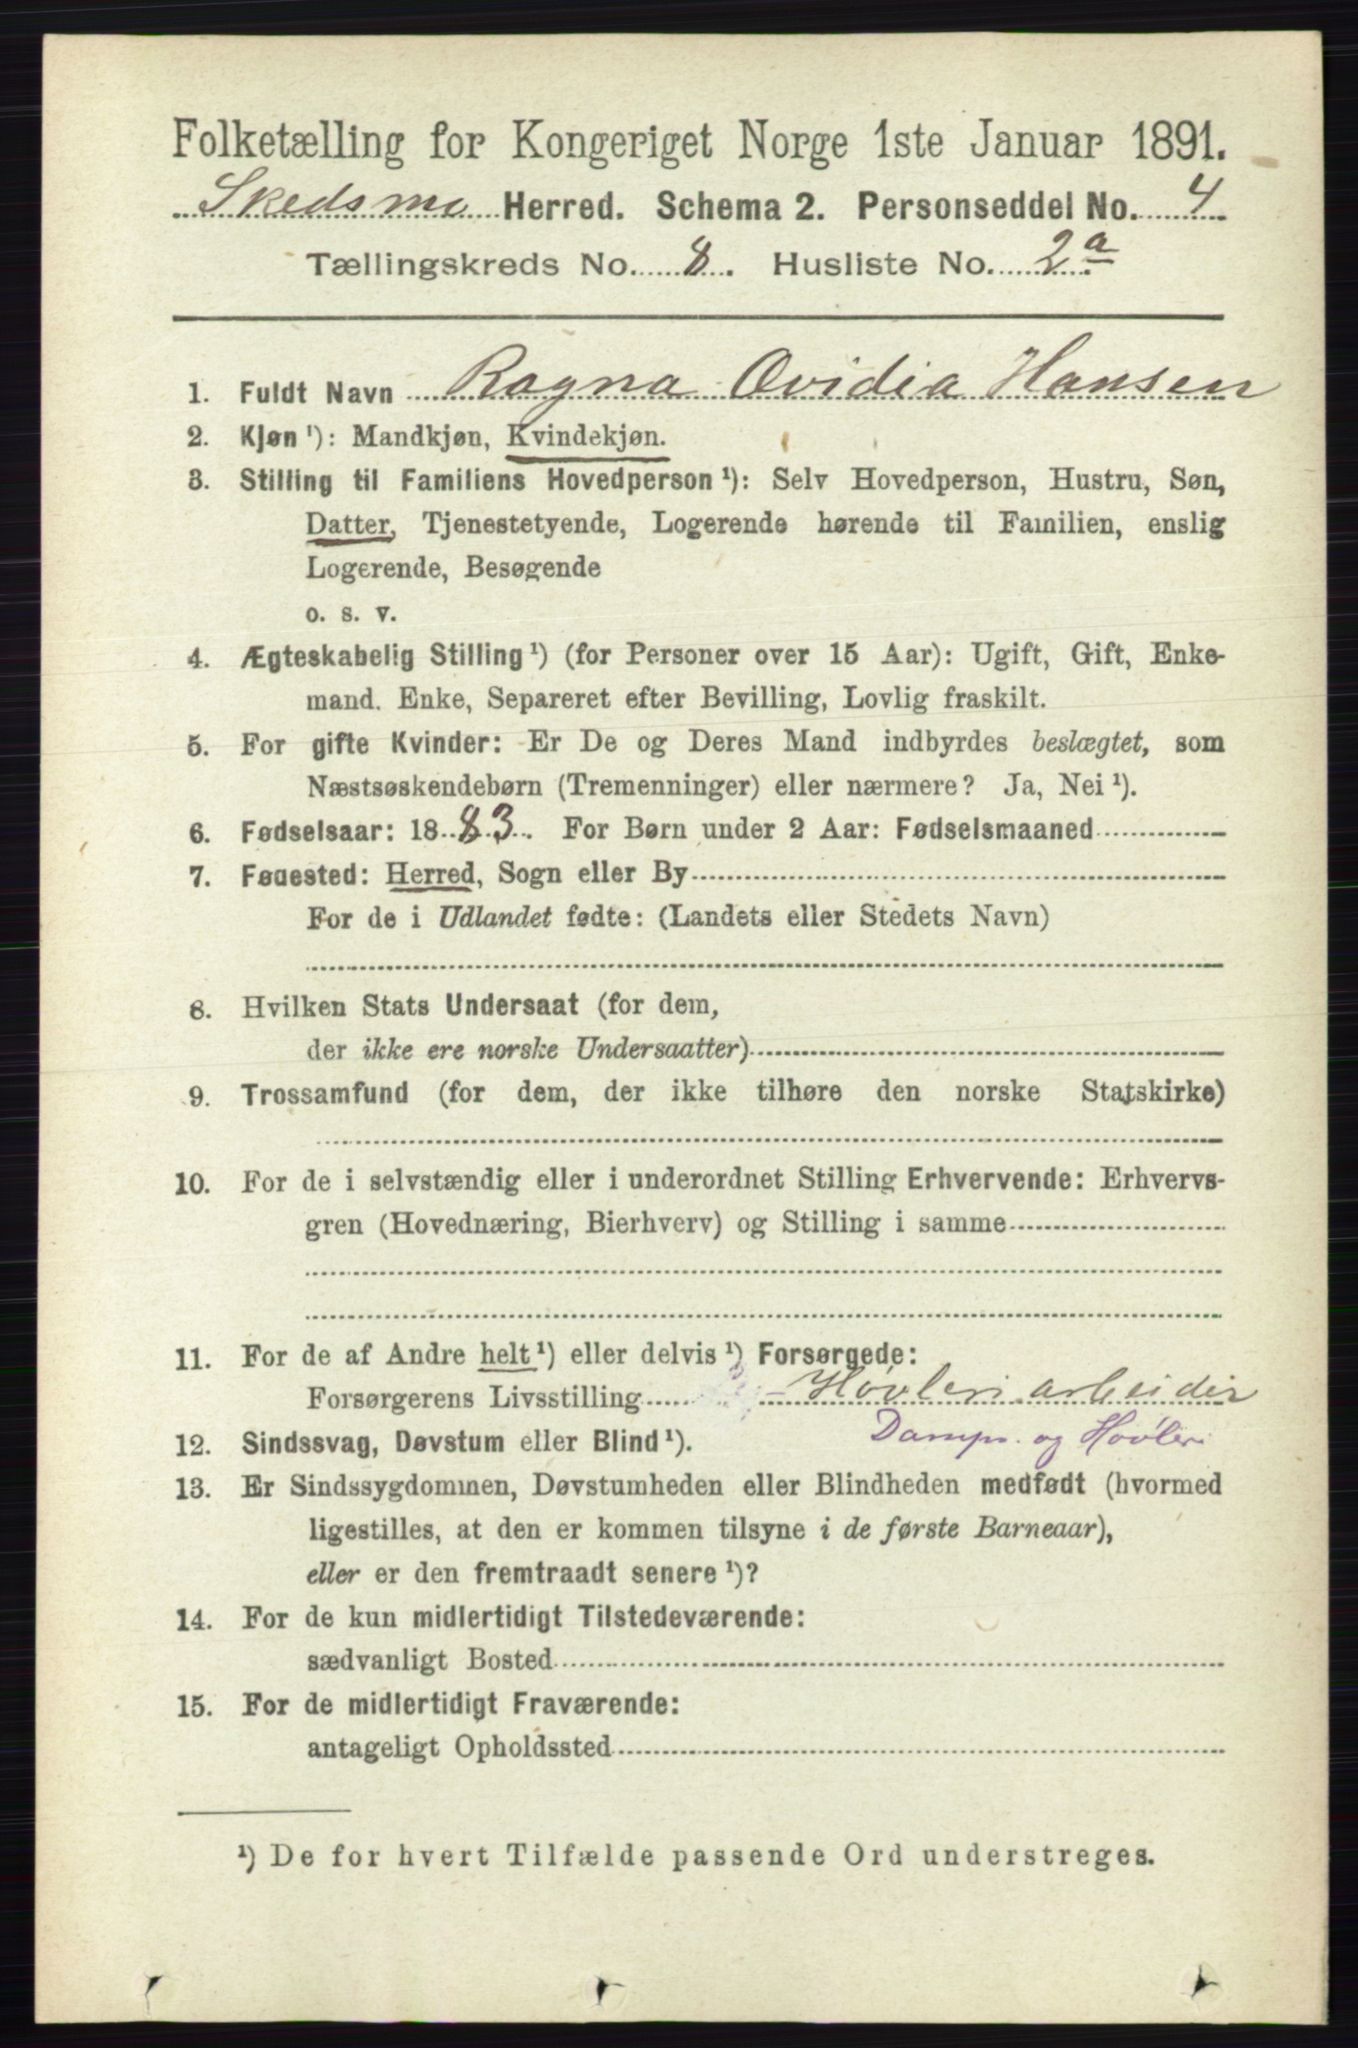 Folketælling for Kongeriget Norge 1ste Januar 1891.
Skedsmo Herred. Schema 2. Personseddel No. 4
Tællingskreds No. 8. Husliste No. 2a
1. Fuldt Navn Ragna Ovidia Hansen
2. Kjøn ¹): Mandkjøn, Kvindekjøn.
3. Stilling til Familiens Hovedperson ¹): Selv Hovedperson, Hustru, Søn,
Datter, Tjenestetyende, Logerende hørende til Familien, enslig
Logerende, Besøgende
o. s. v.
4. Ægteskabelig Stilling ¹) (for Personer over 15 Aar): Ugift, Gift, Enke-
mand. Enke, Separeret efter Bevilling, Lovlig fraskilt.
5. For gifte Kvinder: Er De og Deres Mand indbyrdes beslægtet, som
Næstsøskendebørn (Tremenninger) eller nærmere? Ja, Nei ¹).
6. Fødselsaar: 1883. For Børn under 2 Aar: Fødselsmaaned
7. Fødested: Herred, Sogn eller By
For de i Udlandet fødte: (Landets eller Stedets Navn)
8. Hvilken Stats Undersaat (for dem,
der ikke ere norske Undersaatter)
9. Trossamfund (for dem, der ikke tilhøre den norske Statskirke)
10. For de i selvstændig eller i underordnet Stilling Erhvervende: Erhvervs-
gren (Hovednæring, Bierhverv) og Stilling i samme
11. For de af Andre helt ¹) eller delvis ¹) Forsørgede:
Forsørgerens Livsstilling Høvleriarbeider
Damps. og Høvleri
12. Sindssvag, Døvstum eller Blind ¹).
13. Er Sindssygdommen, Døvstumheden eller Blindheden medfødt (hvormed
ligestilles, at den er kommen tilsyne i de første Barneaar),
eller er den fremtraadt senere ¹)?
14. For de kun midlertidigt Tilstedeværende:
sædvanligt Bosted
15. For de midlertidigt Fraværende:
antageligt Opholdssted
¹) De for hvert Tilfælde passende Ord understreges.